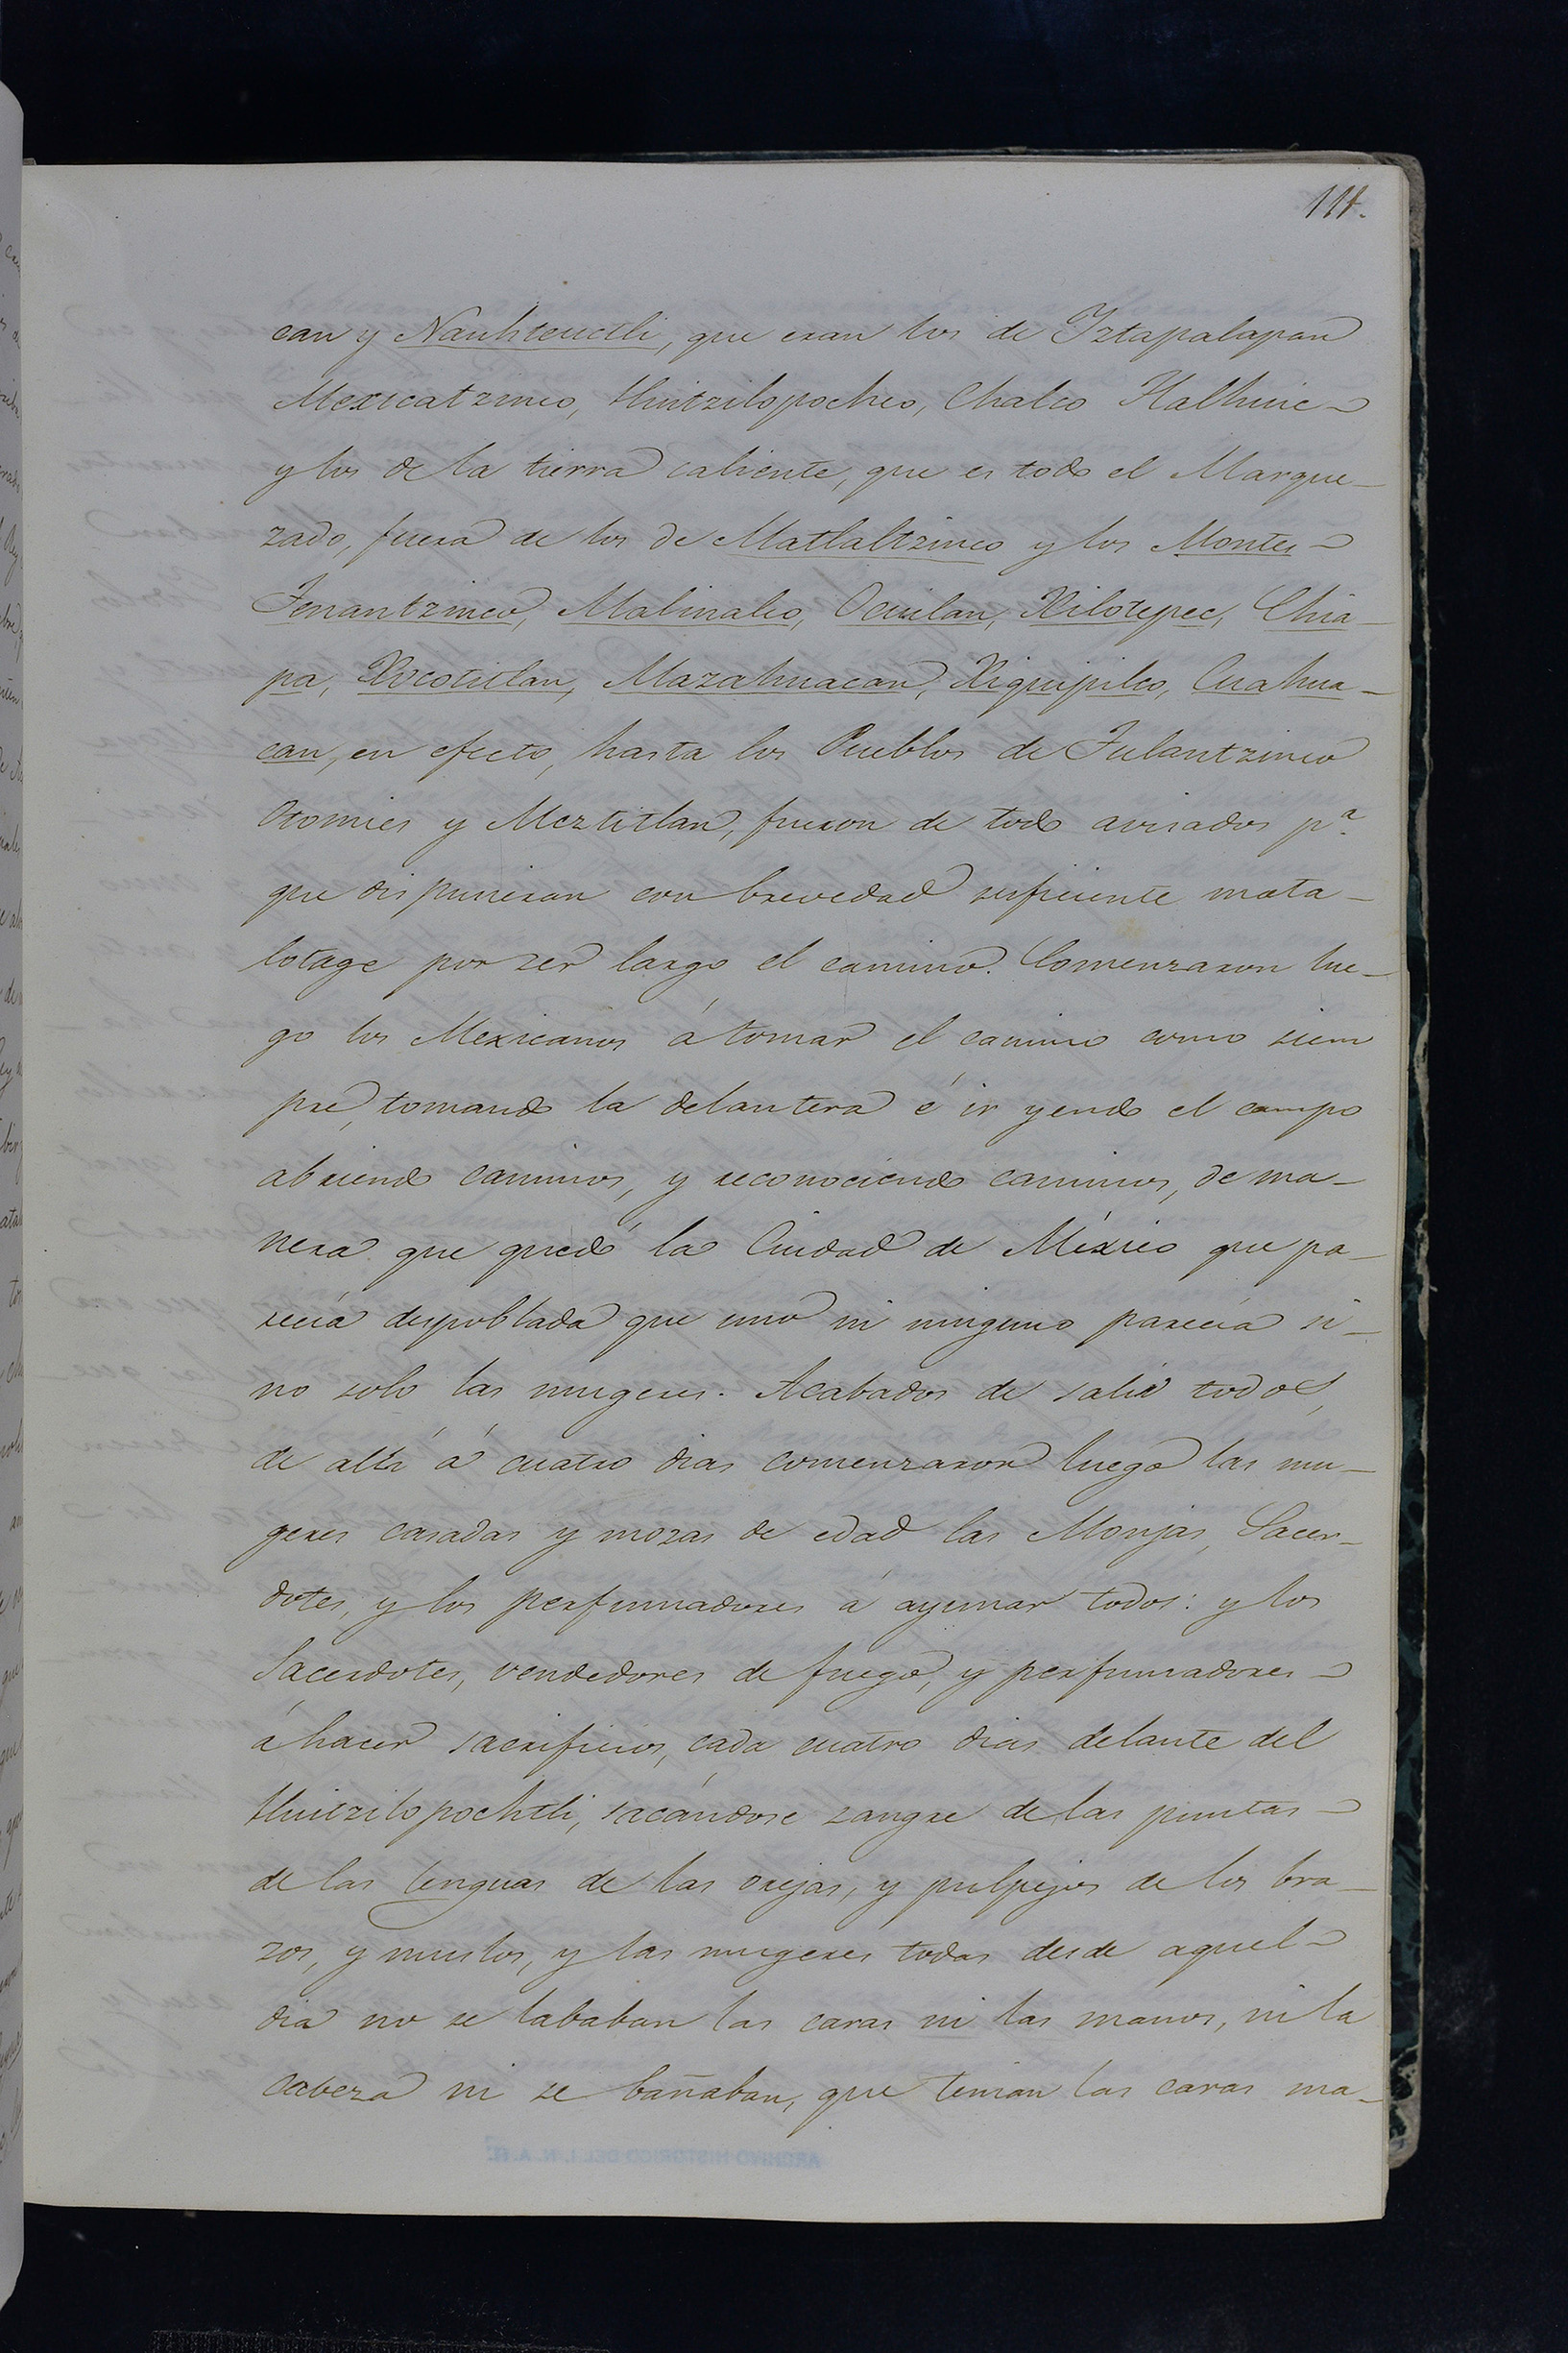 111.
can y Nauhteuctli, que eran los de Iztapalapan
Mexicatzinco, Huitzilopochco, Chalco Tlalhuic
y los de la tierra caliente, que es todo el Marque-
zado, fuera de los de Matlaltzinco y los Montes
Tenantzinco, Malinalco, Ocuilan, Xilotepec, Chia-
pa, Xocotitlan, Mazahuacan, Xiquipilco, Cuahua-
can, en efecto, hasta los Pueblos de Tulantzinco
Otomies y Meztitlan, fueron de todo avisados pª.
que dispunieran con brevedad suficiente mata-
lotage por ser largo el camino. Comenzaron lue-
go los Mexicanos á tomar el camino como siem
pre, tomando la delantera é ir yendo el campo
abriendo caminos, y reconociendo caminos, de ma-
nera que quedó la Ciudad de México que pa-
recía despoblada que uno ni ninguno parecía si-
no solo las mugeres. Acabados de salir todos,
de allí á cuatro dias comenzaron luego las mu-
geres casadas y mozas de edad las Monjas, Sacer-
dotes, y los perfumadores á ayunar todos: y los
Sacerdotes, vendedores de fuego, y perfumadores
á hacer sacrificios, cada cuatro dias delante del
Huitzilopochtli, sacándose sangre de las puntas
de las lenguas de las orejas, y pulpejos de los bra-
zos, y muslos, y las mugeres todas desde aquel
dia no se lababan las caras ni las manos, ni la
cabeza ni se bañaban, que tenian las caras ma-